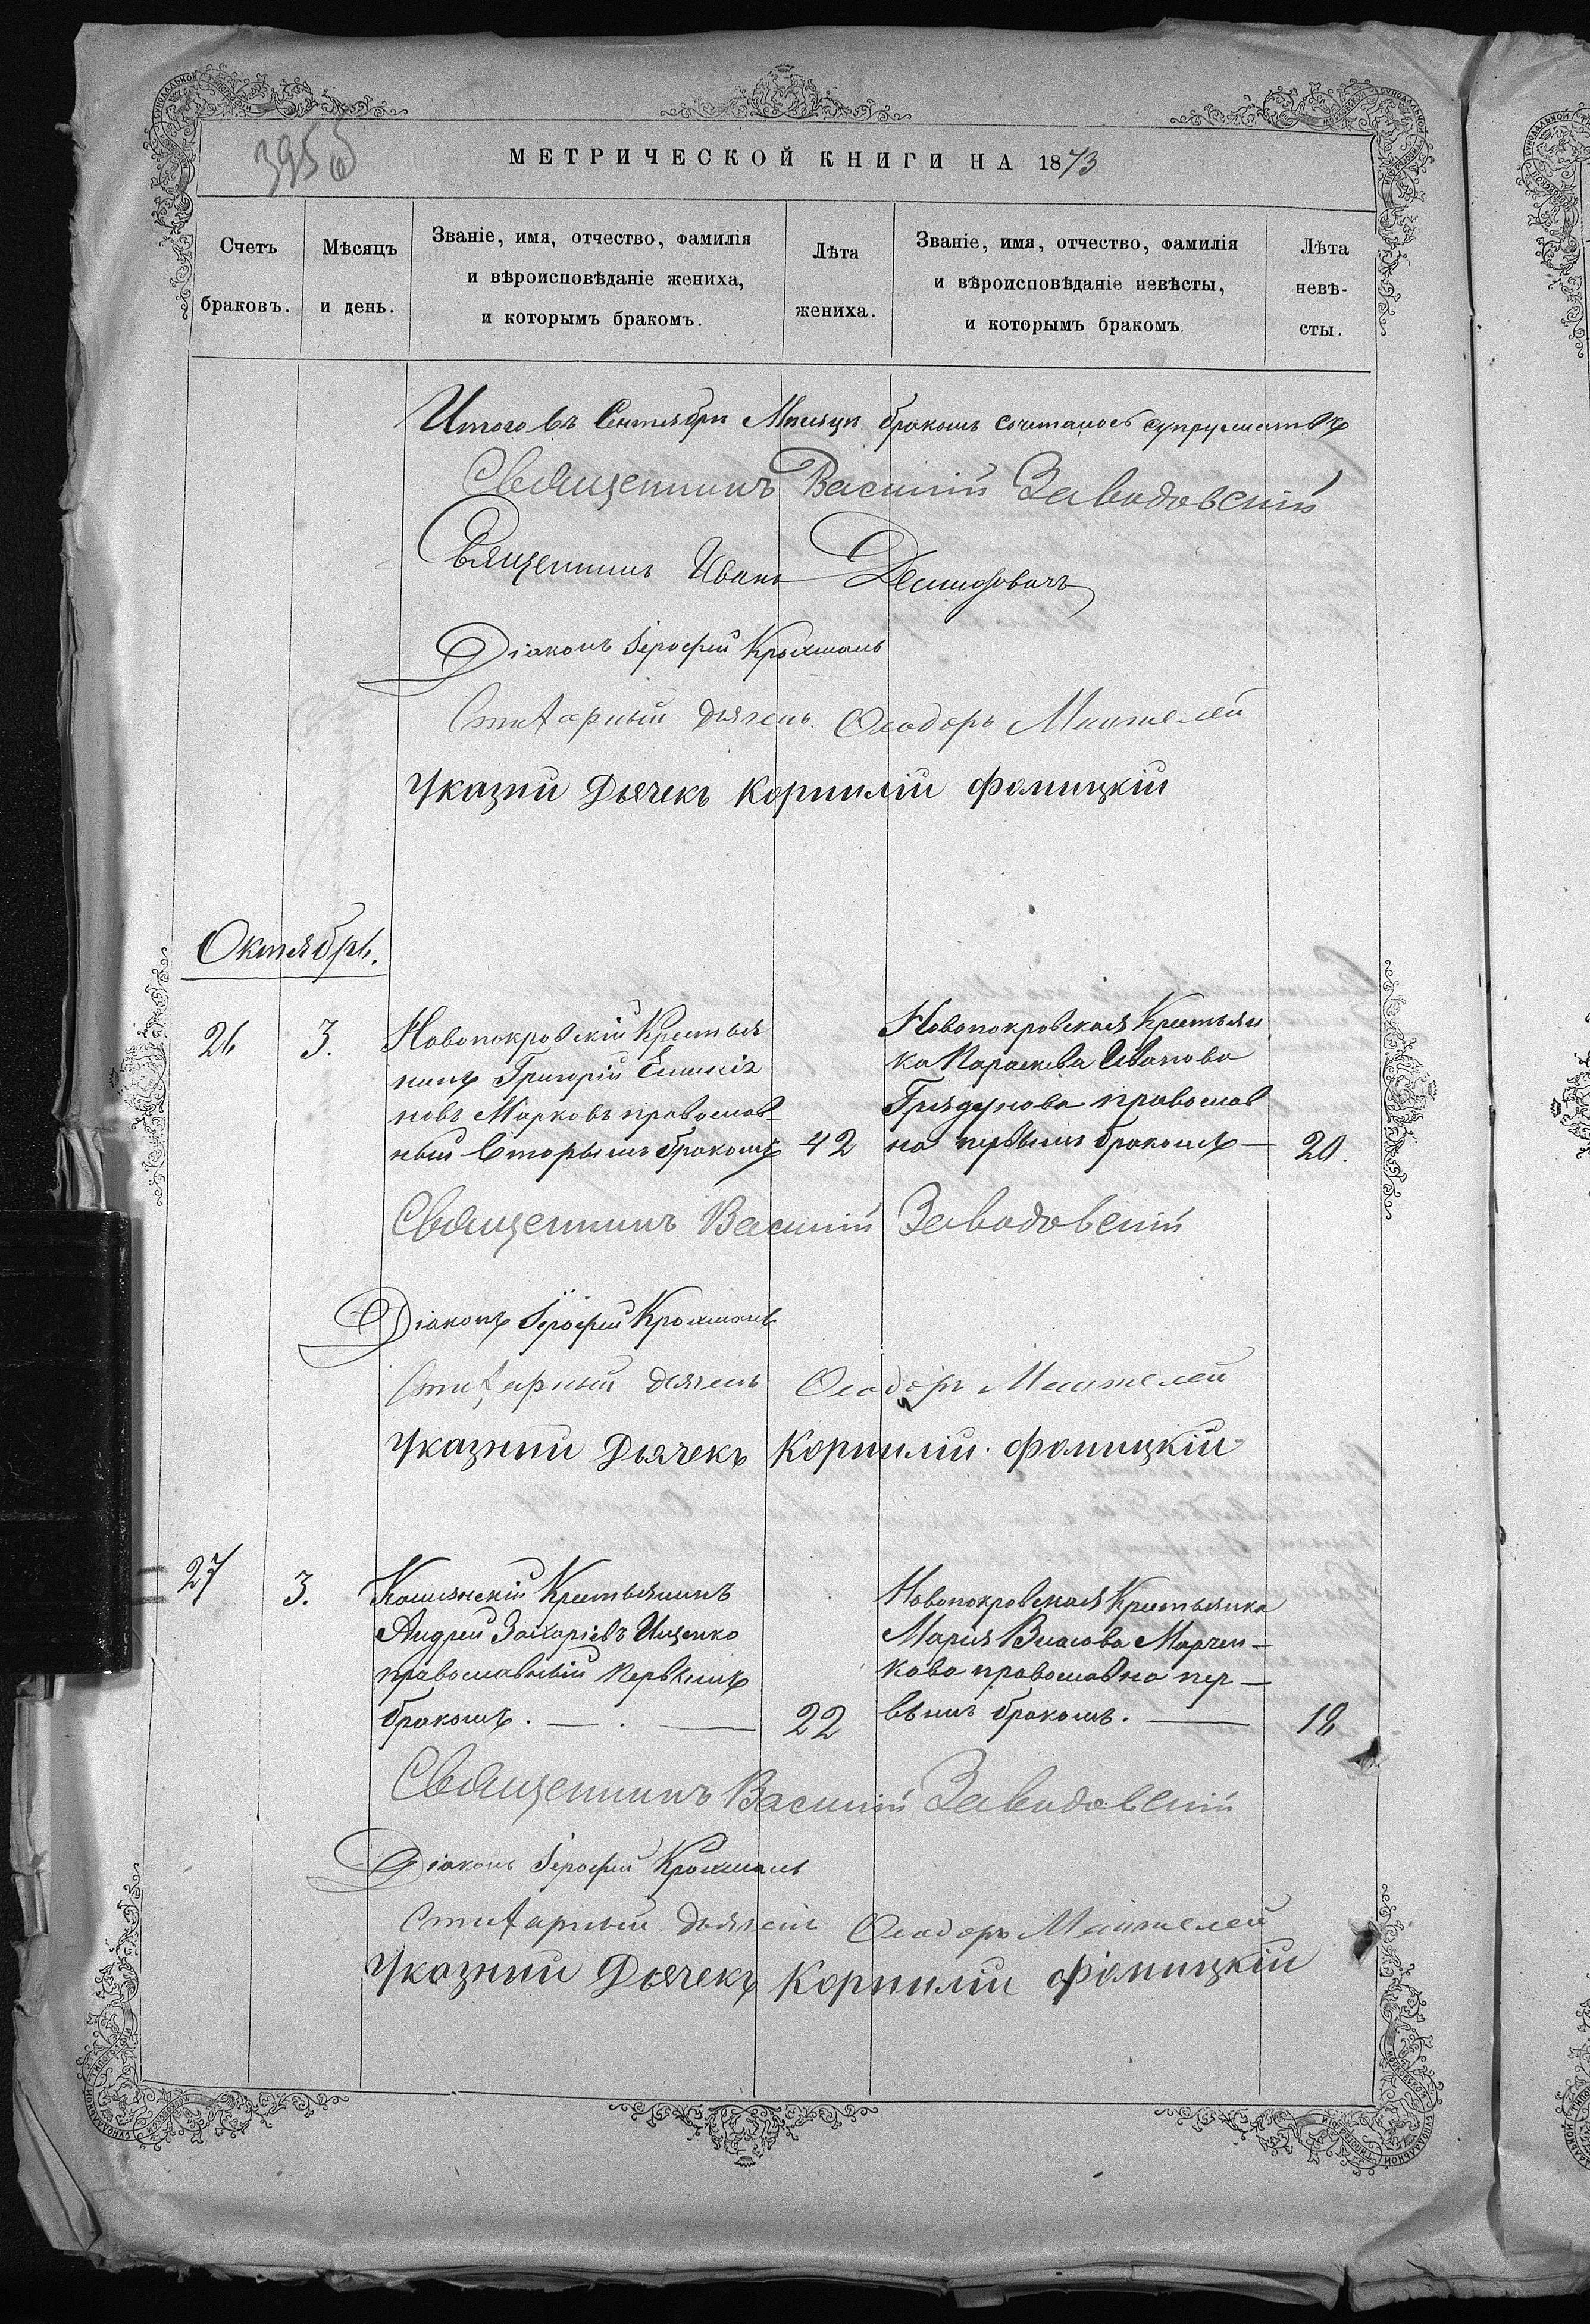 395
МЕТРИЧЕСКОЙ КНИГИ НА 1873
Счетъ браковъ.
Мѣсяцъ и день.
Званіе, имя, отчество, фамилія
и вѣроисповѣданіе жениха,
и которымъ бракомъ.
Лѣта жениха.
Званіе, имя, отчество, фамилія
и вѣроисповѣданіе невѣсты,
и которымъ бракомъ.
Лѣта невѣ-
сты.
Итого въ Сентябри Мисяци бракомъ сочеталось
Священникъ Василій Заводовскій
Священникъ Иванъ
Діаконъ Іерофей Крохмаль
Дьячекъ Ѳеодоръ
Указній Дьячекъ Корнилій Фомицкій
Октябрь.
26 3.
Новопокровскій Крестья
нинъ Григорій
новъ Марковъ православ-
ный Вторымъ бракомъ 42
Новопокровская Крестьян
ка Параскева Иванова
Грядунова православ
на первымъ бракомъ — 20.
Священникъ Василій Заводовскій
Діаконъ Іерофей Крохмаль
Дьячекъ Ѳеодоръ
Указній Дьячекъ Корнилій Фомицкій
27 3.
Крестьянинъ
Андрей Захаріевъ Ищенко
православный первымъ
бракомъ. — . — 22
Новопокровская Крестьянка
Марія Власова Марчен-
кова православна пер-
вымъ бракомъ. — 18
Священникъ Василій Заводовскій
Діаконъ Іерофей Крохмаль
Дьячекъ Ѳеодоръ
Указній Дьячекъ Корнилій Фомицкій